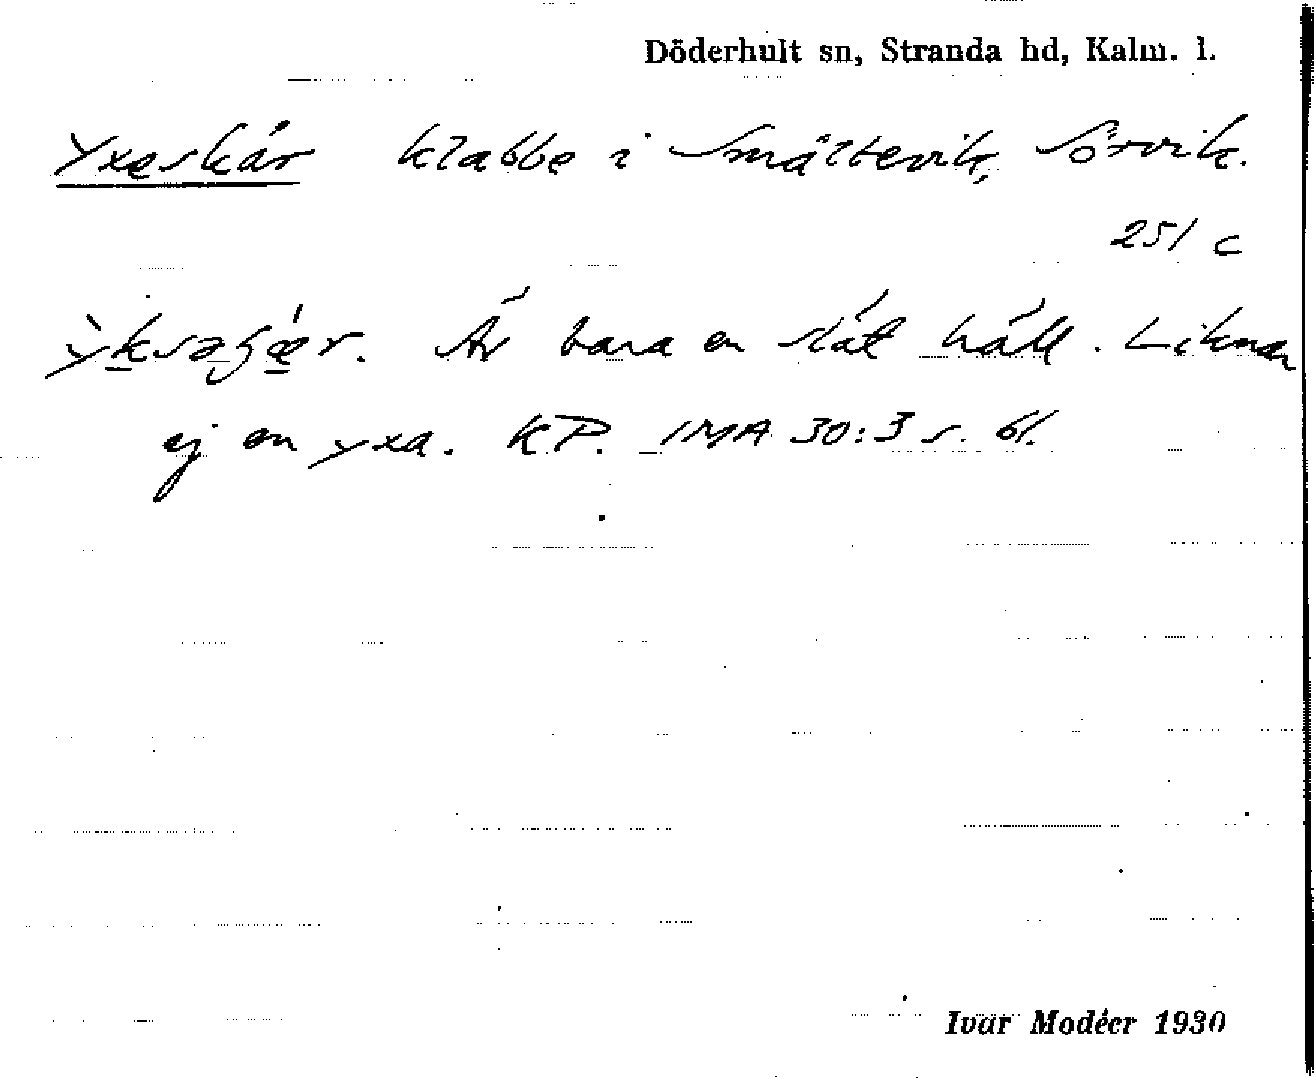 Döderhult sn, Stranda hd, Kalm. l.
Yxeskär klabbe i Smältevik, Sörvik.
251 c
Är bara en slät häll. Liknar
ej en yxa. KP. IMA 30:3 s. 61.
Ivar Modéer 1930